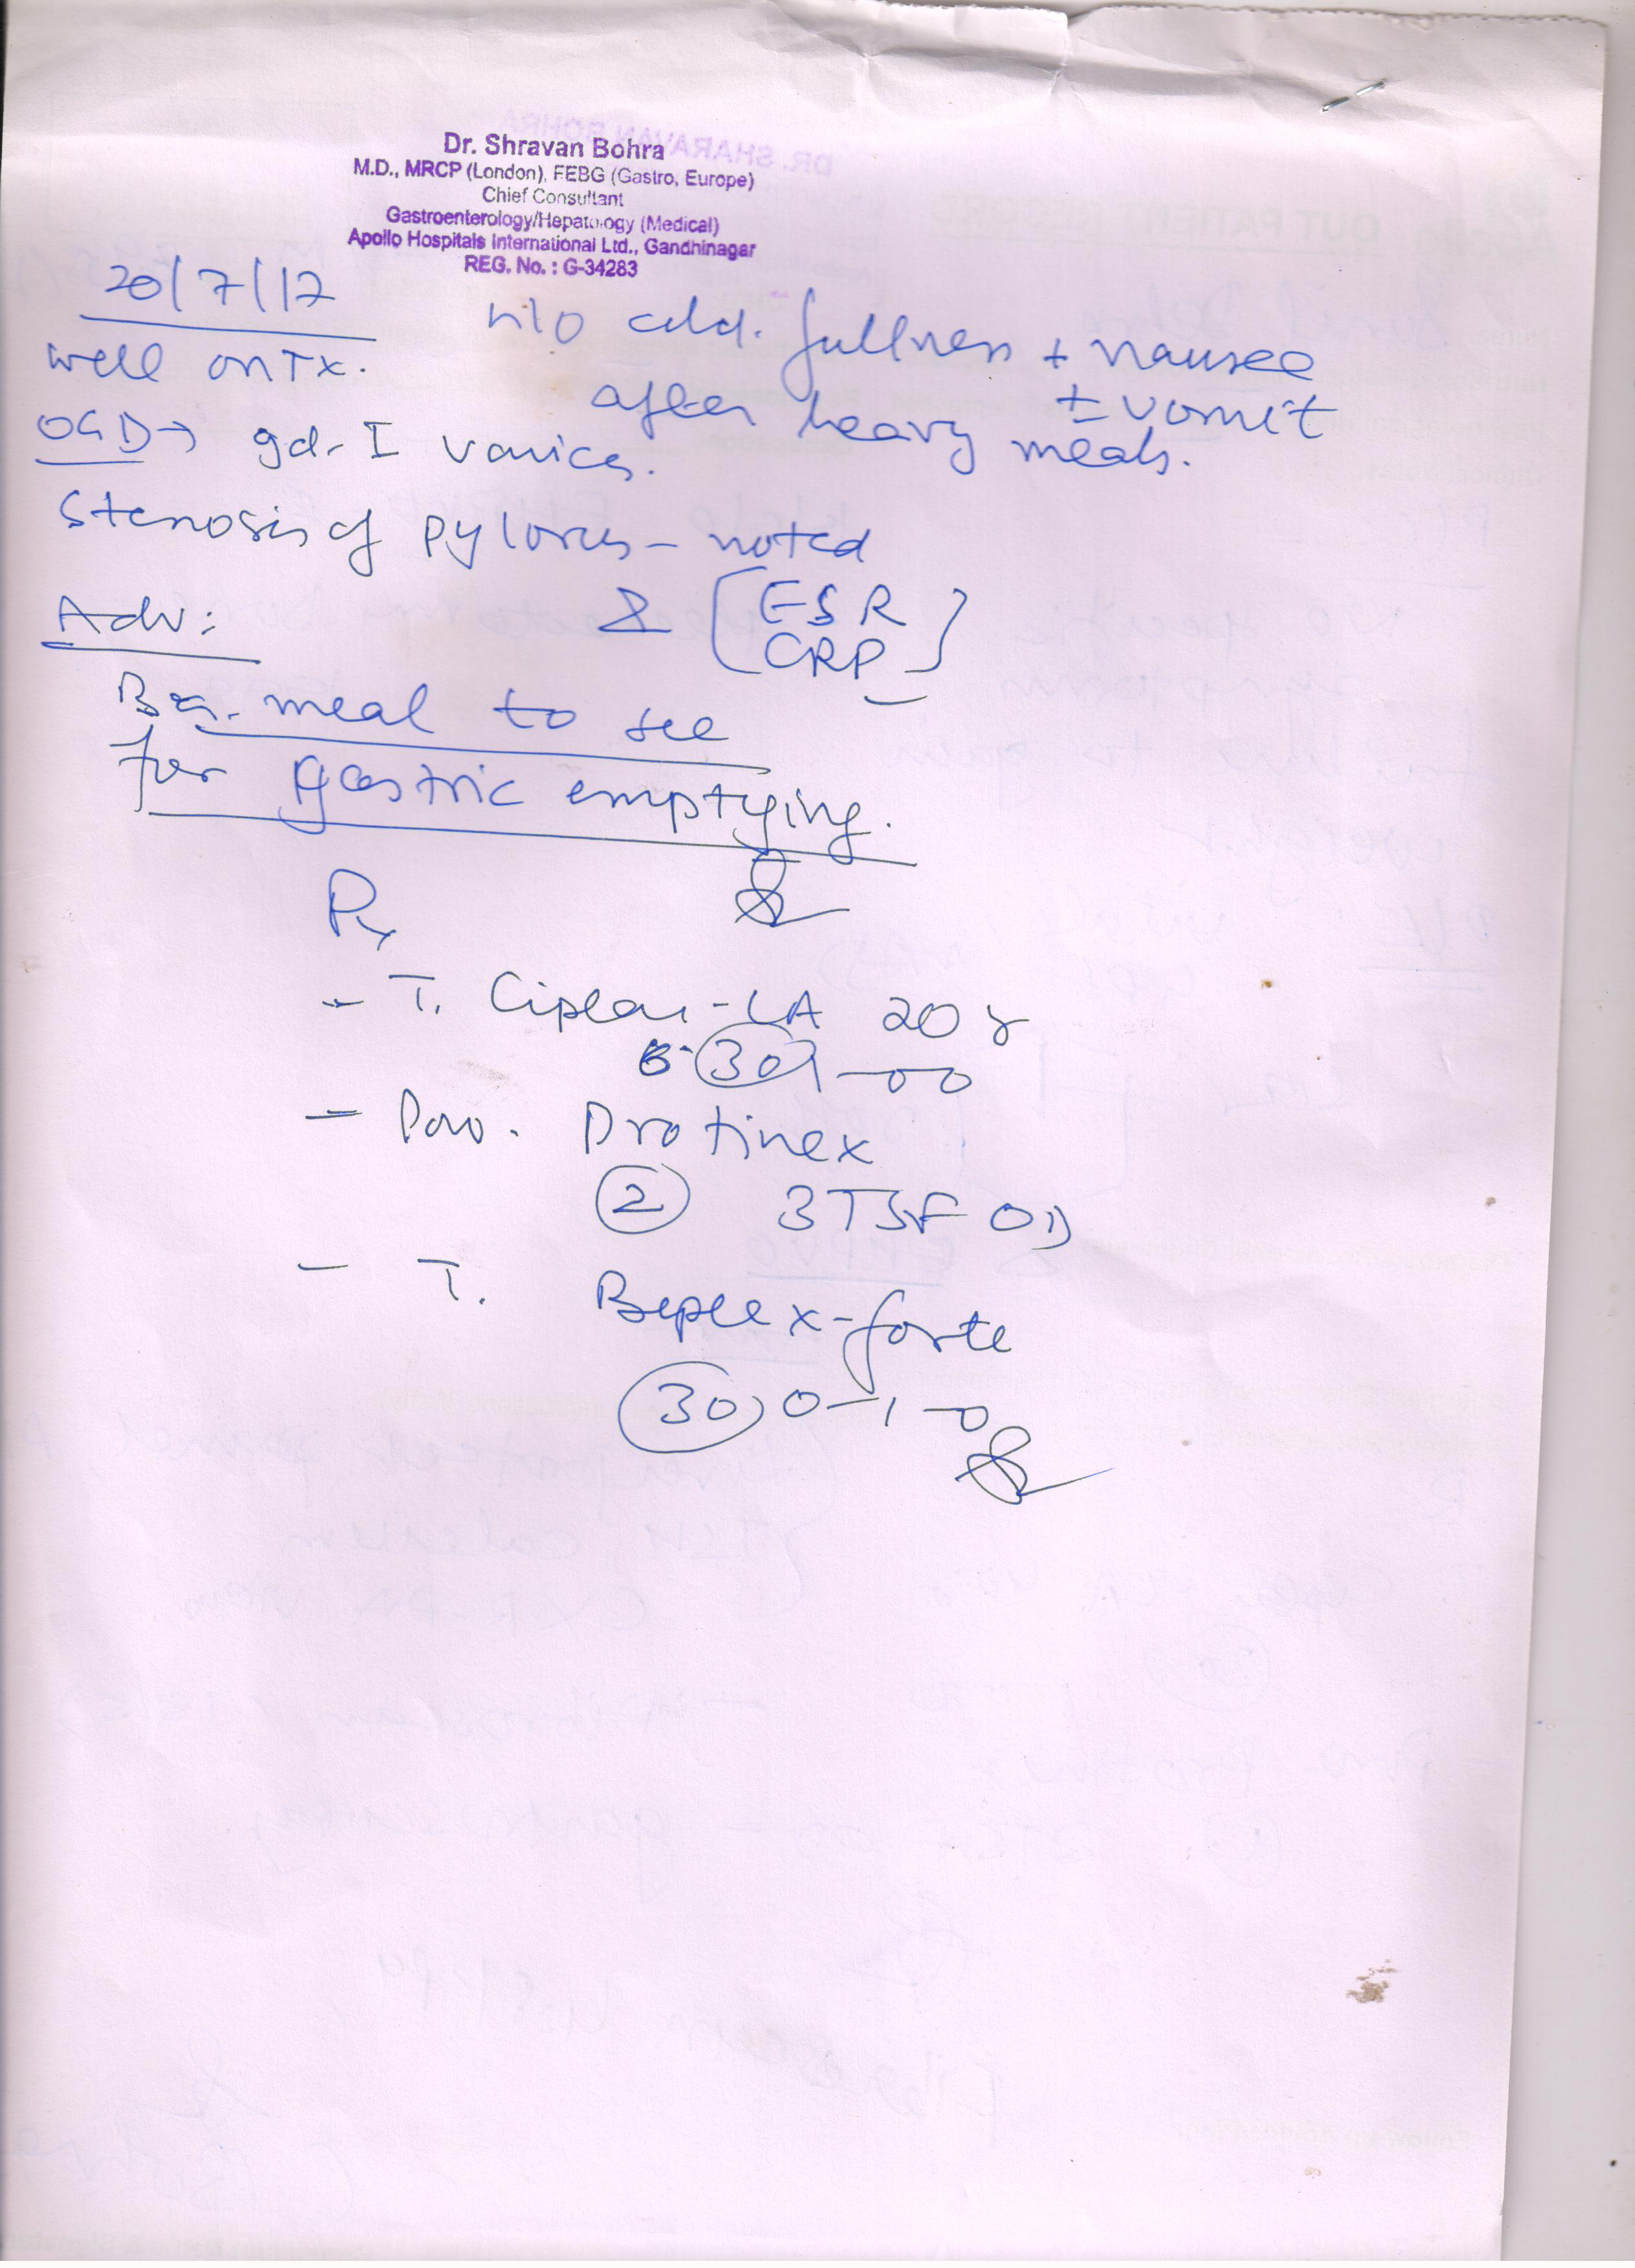 Dr. Shravan Bohra
M.D., MRCP (London), FEBG (Gastro, Europe)
Chief Consultant
Gastroenterology/Hepatology (Medical)
Apollo Hospitals International Ltd., Gandhinagar
REG. No. : G-34283
20/7/17
well on Tx.
H/O abd. fullness + nausea
± vomit
after heavy meals.
OGD → gd. I varices.
Stenosis of pylorus - noted
Adv:
& [ESR
CRP]
Ba. meal to see
for gastric emptying.
Rx
- T. Ciplar-LA 20
30 1-0-0
- Pow. Protinex
2 3TSF OD
- T. Beplex-forte
30 0-1-0